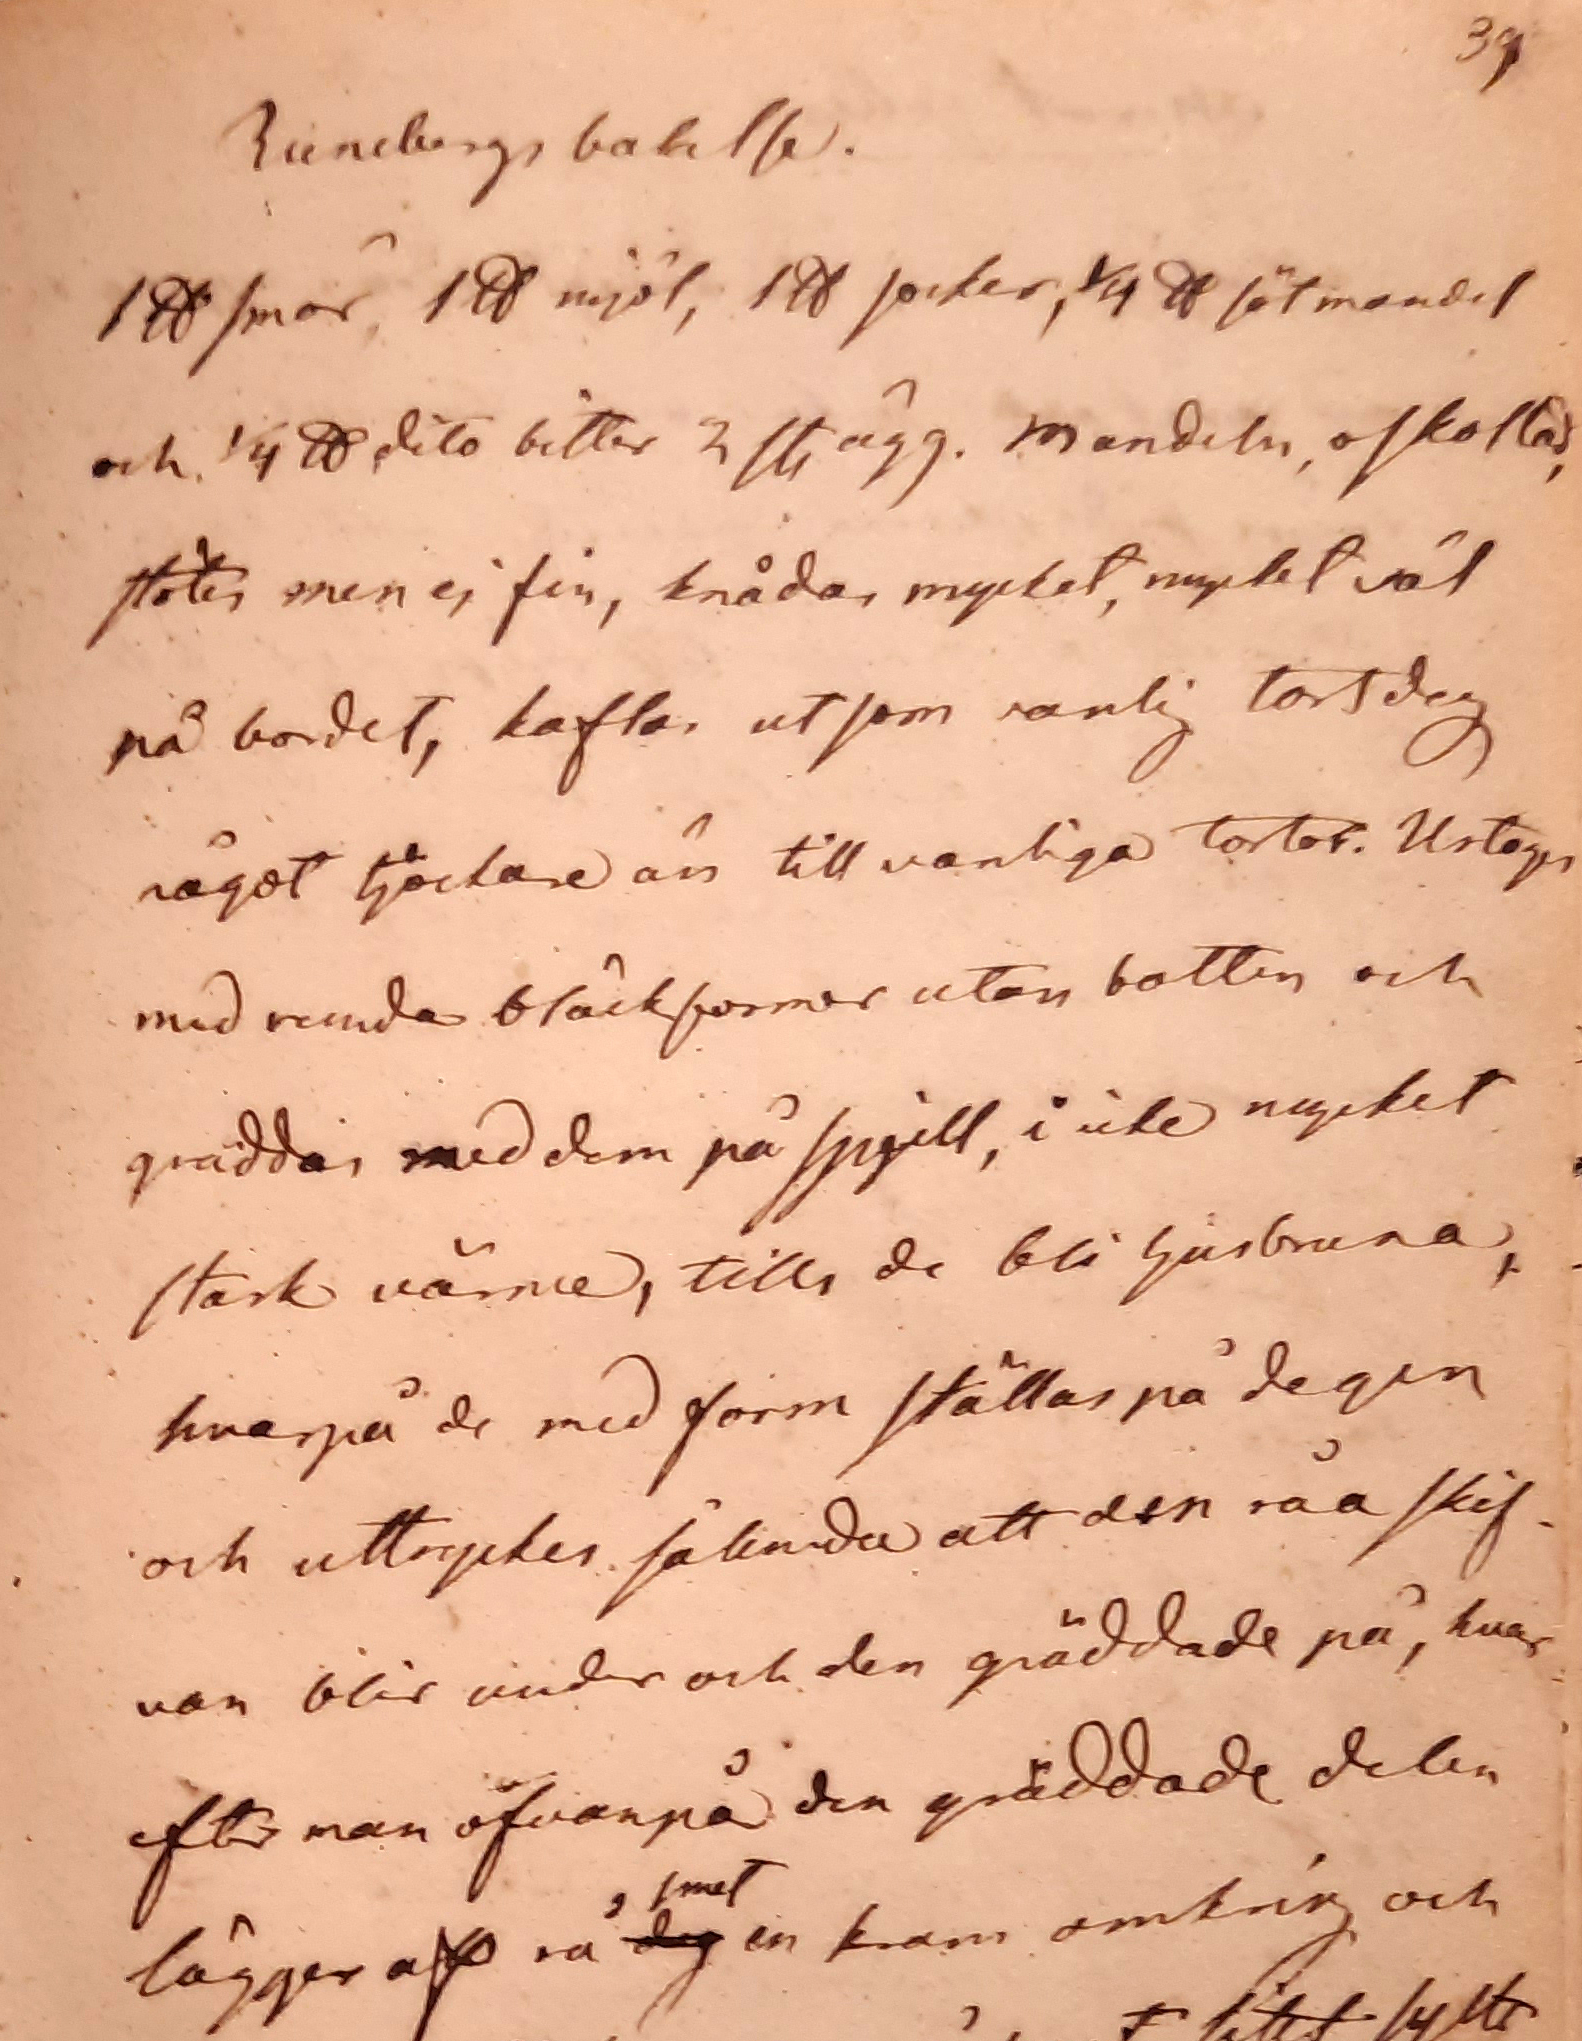 39
Runebergs bakelse.
1 ℔ smör, 1 ℔ mjöl, 1 ℔ socker, 1/4 ℔ sötmandel
och 1/4 ℔ dito bitter 2 st. ägg. Mandeln, oskållad,
stötes men ej fin, knådas mycket, mycket väl
på bordet, kaflas ut som vanlig tortdeg
något tjockare än till vanliga tortor. Uttages
med runda bläckformor utan botten och
gräddas med dem på spjell, i icke mycket
stark värme, tills de bli ljusbruna,
hvarpå de med form ställas på degen
och uttryckes sålunda att den råa skif-
van blir under och den gräddade på, hvar-
efter man öfvanpå den gräddade delen
lägger af rå smet en krans omkring och
litet sylt